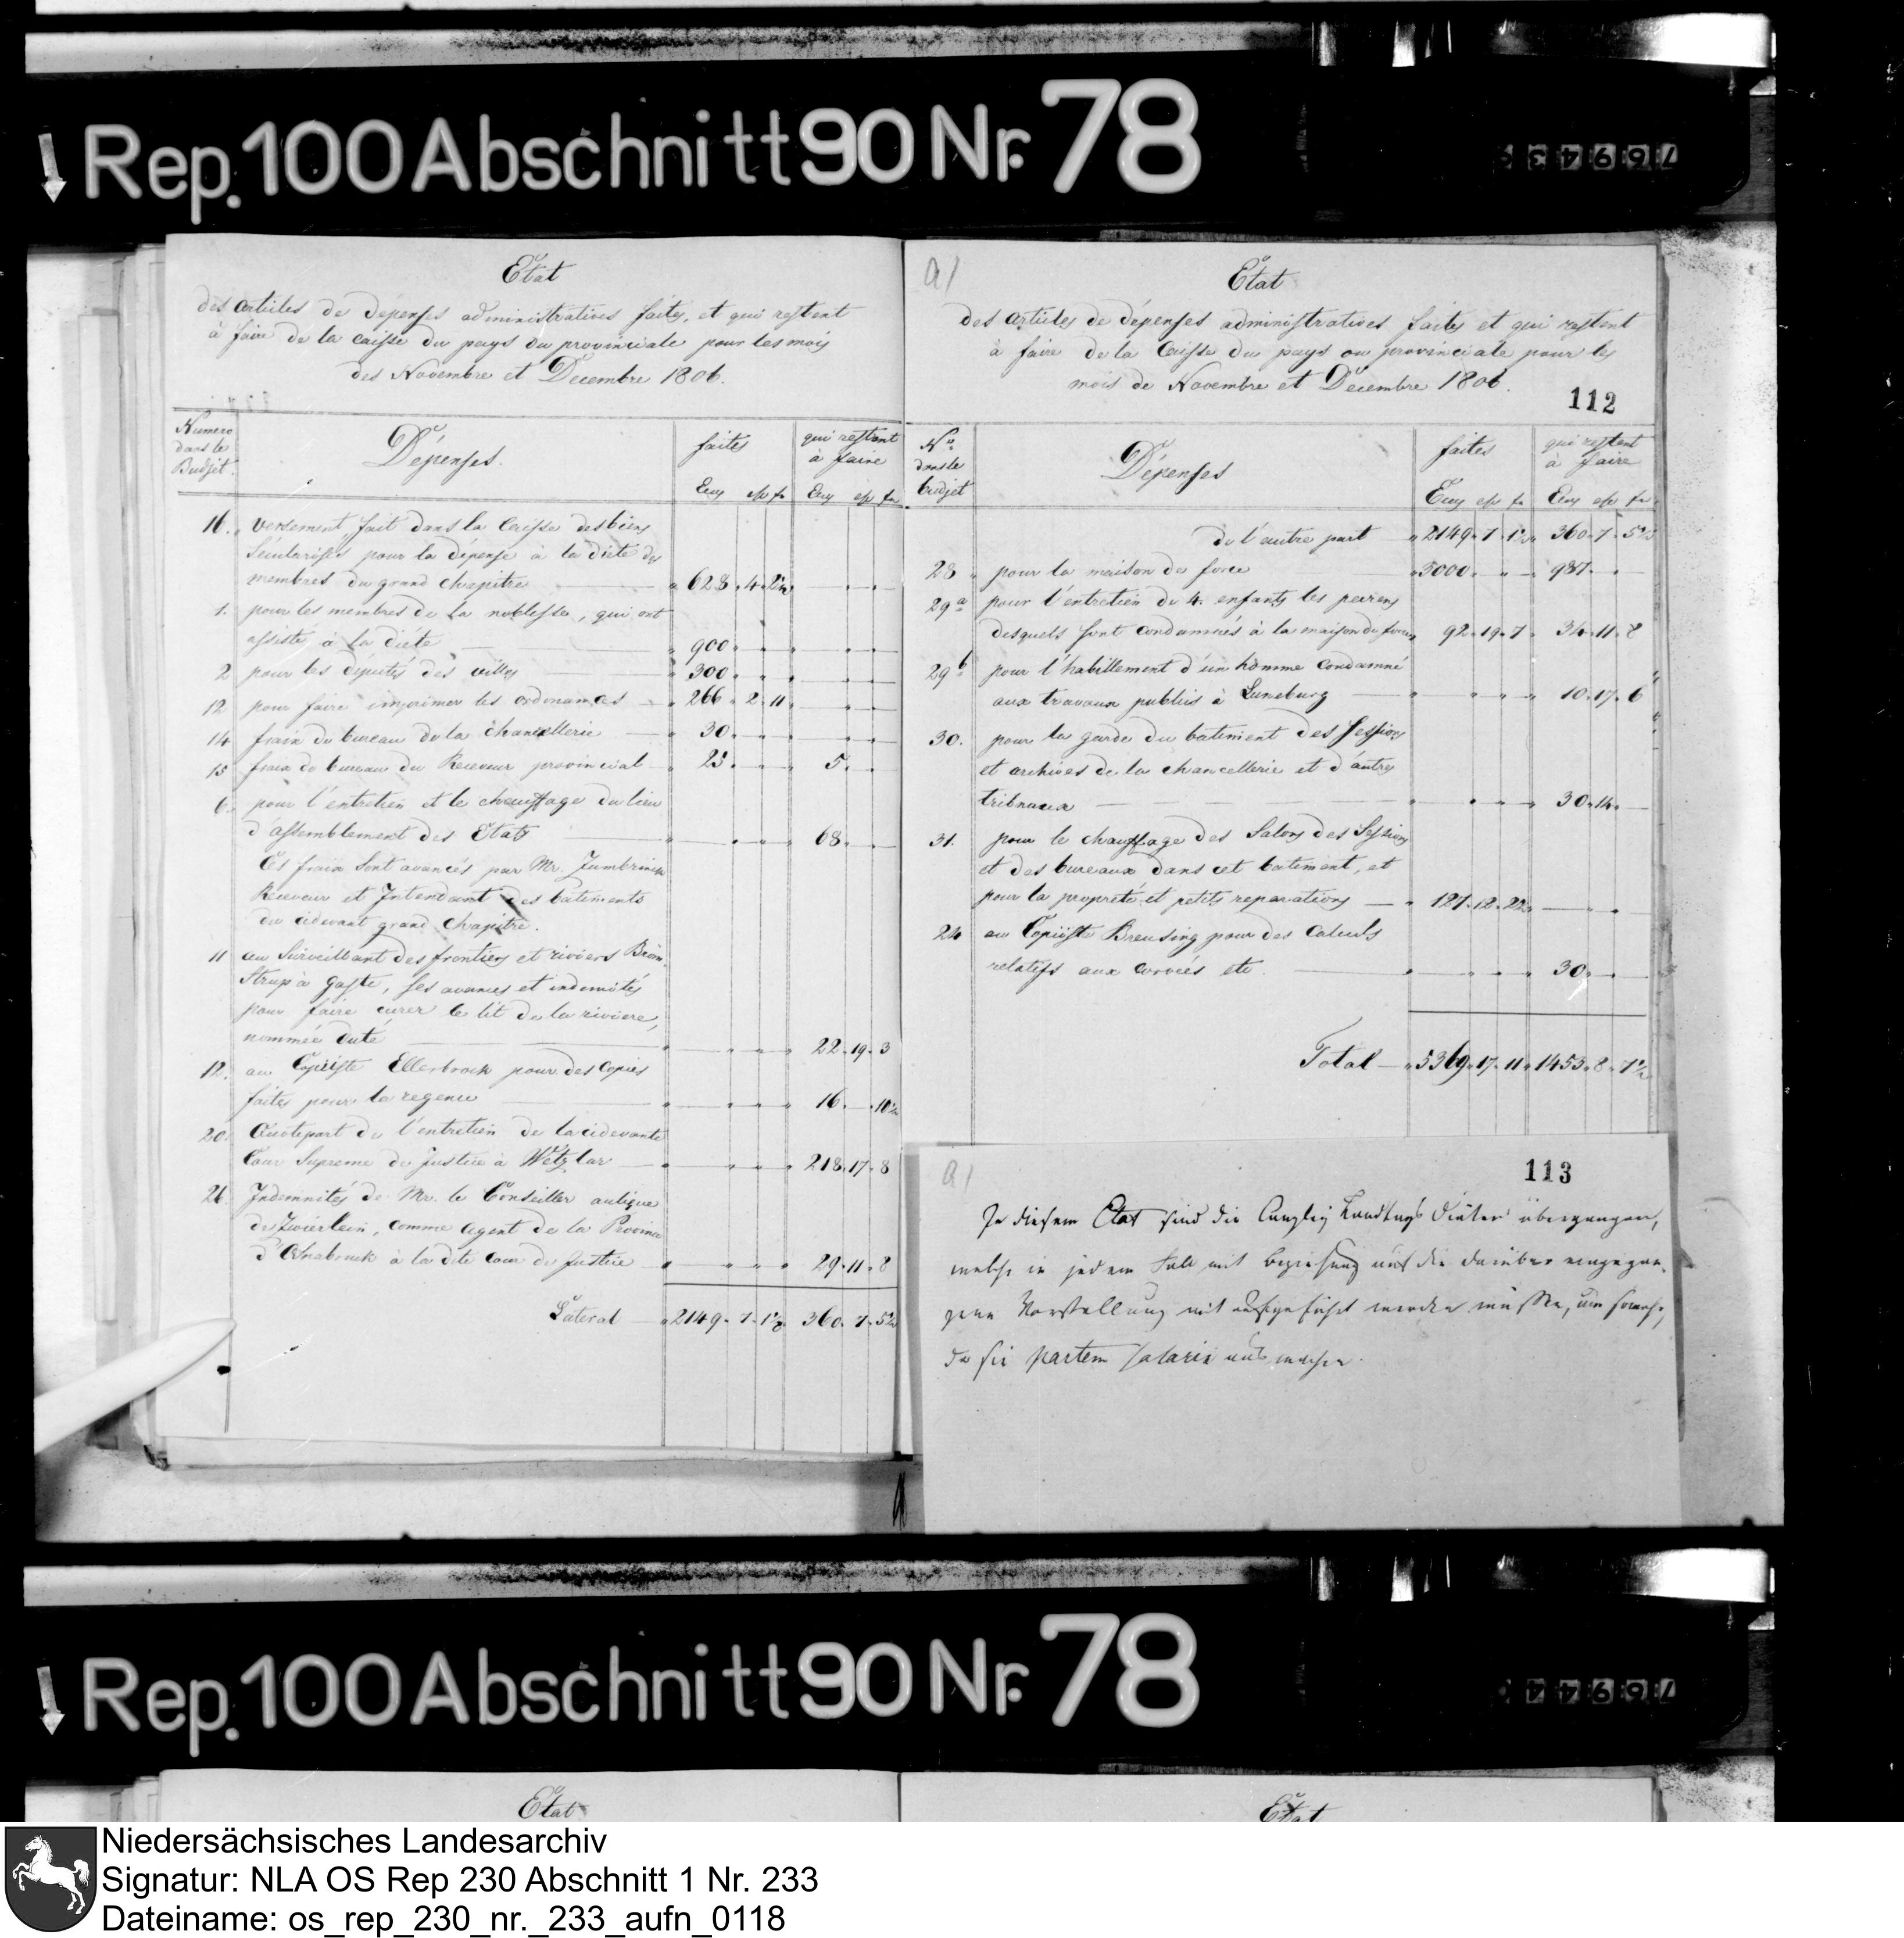 Rep. 100 Abschnitt 90 Nr. 78
Etat
des articles de dépenses administratives faites, et qui restent
à faire de la caisse du pays du provinciale pour les mois
des Novembre et Decembre 1806.
Numero dans le Budjet.
Dépenses.
faites
qui restent à faire
Ecus esp fn
Ecus esp fn
16. versement fait dans la Caisse des biens
Sécularisés pour la dépense à la diète des
membres du grand chapitre 628. 4. 2½
1. pour les membres de la noblesse, qui ont
assisté à la diète 900
2 pour les députés des villes 300
12 pour faire imprimer les ordonances 266. 2. 11
14 fraix du bureau de la chancellerie 30.
15 fraix du bureau du Receveur provincial 25. 5.
6. pour l'entretien et le chauffage du lieu
d'assemblement des Etats 68.
Ces fraix sont avancés par Mr.
Receveur et Intendant des batiments
du cidevant grand Chapitre.
11 au Surveillant des frontiers et riviers Bröm
Strup à Gaste, ses avances et indemnités
pour faire curer le lit de la riviere,
nommée Duté 22. 19. 3
12. au Copiiste Ellerbrock pour des Copies
faites pour la regence 16. — 10½
20. Quotepart de l'entretien de la cidevante
Cour Supreme de Justice à Wetzlar 218. 17. 8
26. Indemnités de Mr. le Conseiller aulique
de Zwierlein, comme Agent de la Province
d'Osnabruck à la dite Cour de Justice 29. 11. 8
Lateral 2149. 7. 1½ 360. 7. 5½
a)
Etat
des articles de dépenses administratives faites et qui restent
à faire de la Caisse du pays ou provinciale pour les
mois de Novembre et Décembre 1806.
112
No dans le budjet
Dépenses
faites
qui restent à faire
Ecus esp fn
Ecus esp fn
de l'autre part 2149. 7. 1½ 360. 7. 5½
28 pour la maison de force 3000. 987.
29a pour l'entretien de 4. enfants les
desquels sont condamnés à la maison de force 92. 19. 7 34. 11. 8
29b pour l'habillement d'un homme condamné
aux travaux publics à Luneburg 10. 17. 6
30. pour la garde du batiment des Sessions
et archives de la chancellerie et d'autres
tribnaux 30. 14.
31. pour le chauffage des Salons des Sessions
et des bureaux dans cet batiment, et
pour la propreté et petits reparations 127. 12.
24 au Copiiste Breusing pour des Calculs
relatifs aux corvées etc. 30.
Total 5369. 17. 11 1453. 8. 7½
a)
113
In diesem Etat sind die Canzley Landtags Diäten übergangen,
welche in jedem Fall mit Beziehung auf die darüber eingegan-
gene Vorstellung mit aufgeführt werden müssen,
da sie partem salarii ausmachen.
Rep. 100 Abschnitt 90 Nr. 78
Etat
Etat
Niedersächsisches Landesarchiv
Signatur: NLA OS Rep 230 Abschnitt 1 Nr. 233
Dateiname: os_rep_230_nr._233_aufn_0118